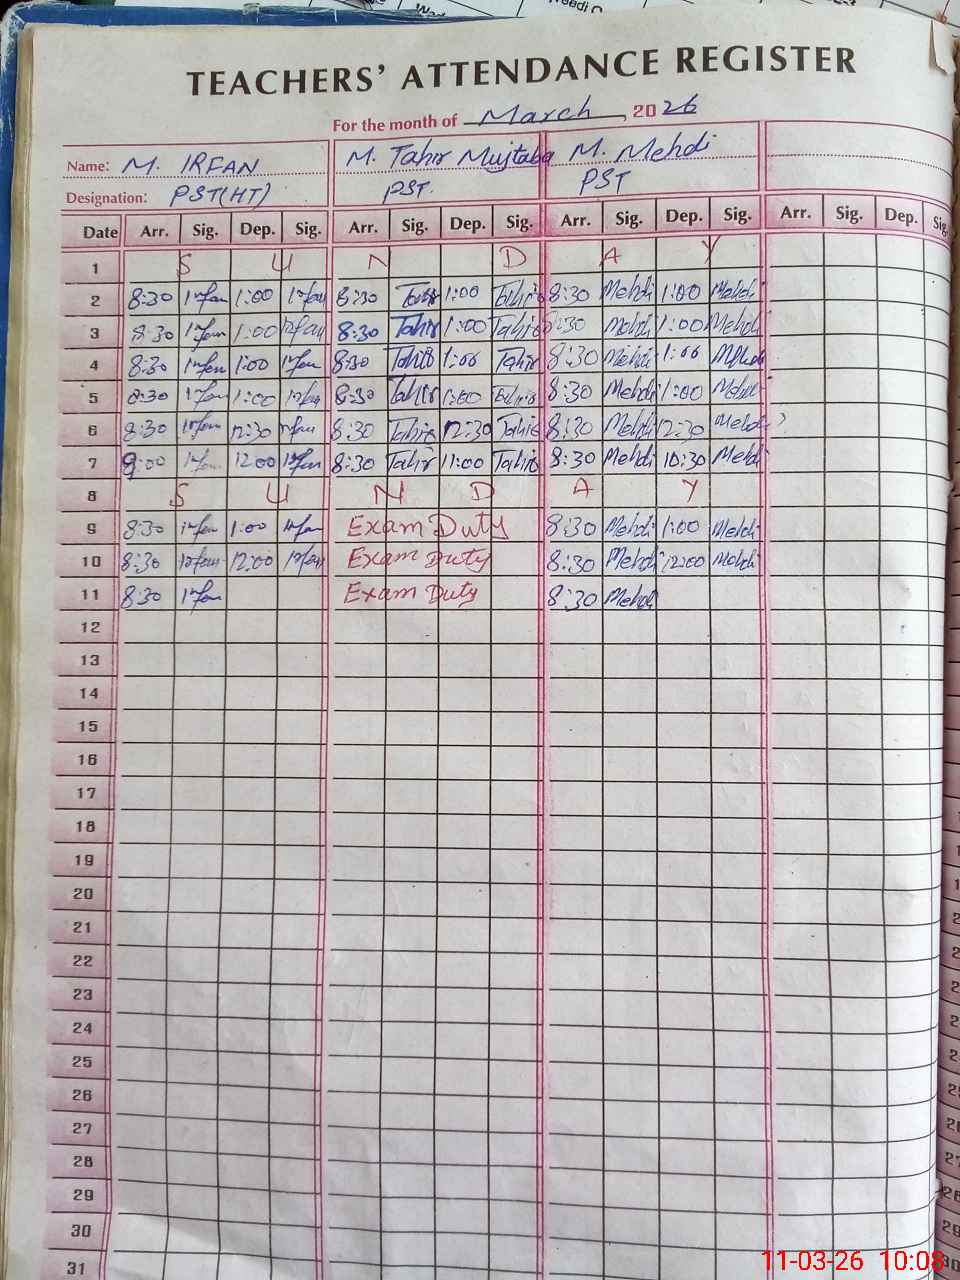 TEACHERS' ATTENDANCE REGISTER
For the month of March, 2026
Name: M. IRFAN M. Tahir Mujtaba M. Mehdi
Designation: PST(HT) PST. PST
Date Arr. Sig. Dep. Sig. Arr. Sig. Dep. Sig. Arr. Sig. Dep. Sig. Arr. Sig. Dep. Sig.
1 S U N D A Y
2 8:30 Irfan 1:00 Irfan 8:30 Tahir 1:00 Tahir 8:30 Mehdi 1:00 Mehdi
3 8:30 Irfan 1:00 Irfan 8:30 Tahir 1:00 Tahir 8:30 Mehdi 1:00 Mehdi
4 8:30 Irfan 1:00 Irfan 8:30 Tahir 1:00 Tahir 8:30 Mehdi 1:00 Mehdi
5 8:30 Irfan 1:00 Irfan 8:30 Tahir 1:00 Tahir 8:30 Mehdi 1:00 Mehdi
6 8:30 Irfan 12:30 Irfan 8:30 Tahir 12:30 Tahir 8:30 Mehdi 12:30 Mehdi
7 9:00 Irfan 12:00 Irfan 8:30 Tahir 11:00 Tahir 8:30 Mehdi 10:30 Mehdi
8 S U N D A Y
9 8:30 Irfan 1:00 Irfan Exam Duty 8:30 Mehdi 1:00 Mehdi
10 8:30 Irfan 12:00 Irfan Exam Duty 8:30 Mehdi 12:00 Mehdi
11 8:30 Irfan Exam Duty 8:30 Mehdi
12
13
14
15
16
17
18
19
20
21
22
23
24
25
26
27
28
29
30
31
11-03-26 10:08